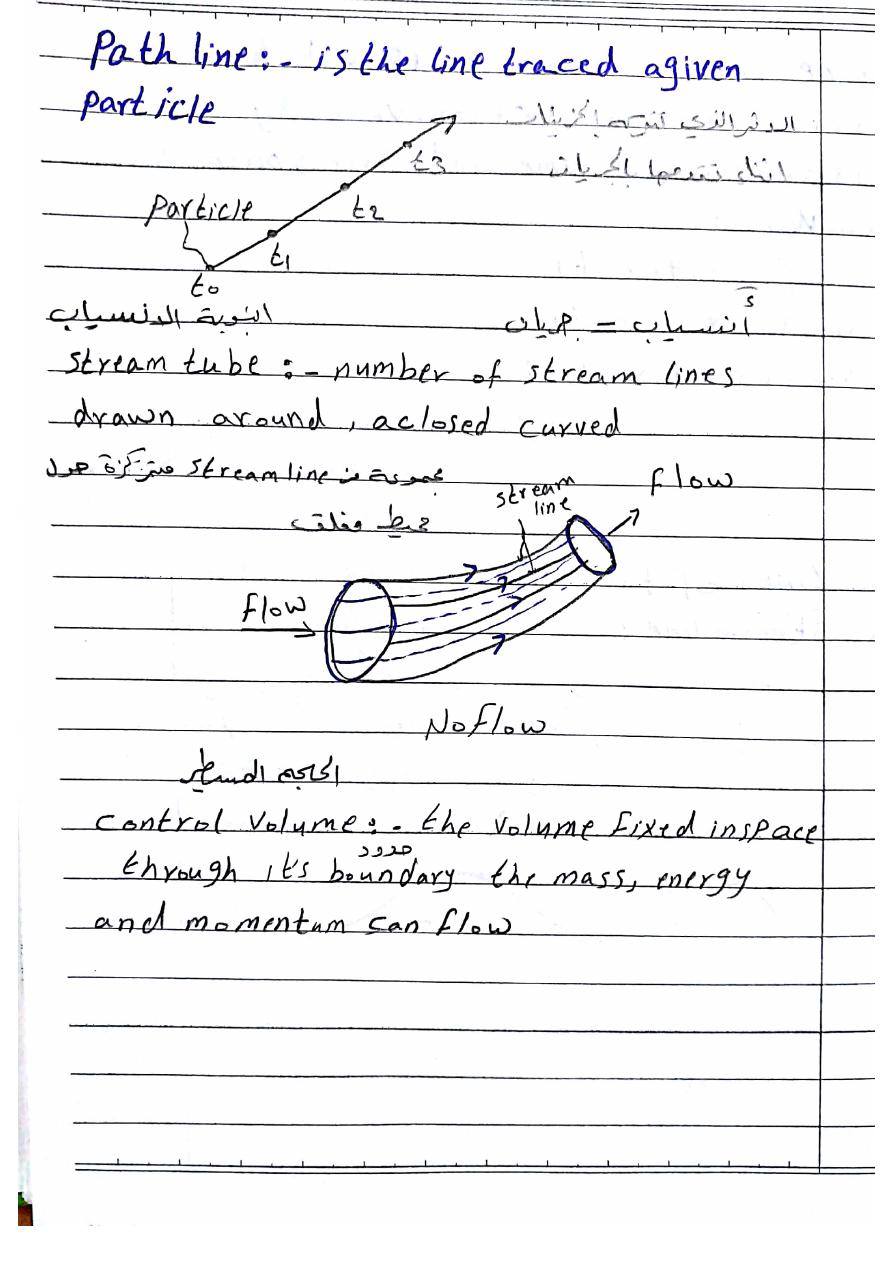 Path line :- is the line traced a given
particle
الاثر الذي تتركه الجزيئات
اثناء تقدمها بالجريان
Particle
t0
t1
t2
t3
انبوبة الانسياب
انسياب = جريان
stream tube :- number of stream lines
drawn around, a closed curved
مجموعة من streamline متركزة حول
محيط مغلق
stream
line
flow
flow
No flow
الحجم المسيطر
control volume :- the volume fixed in space
حدود
through it's boundary the mass, energy
and momentum can flow